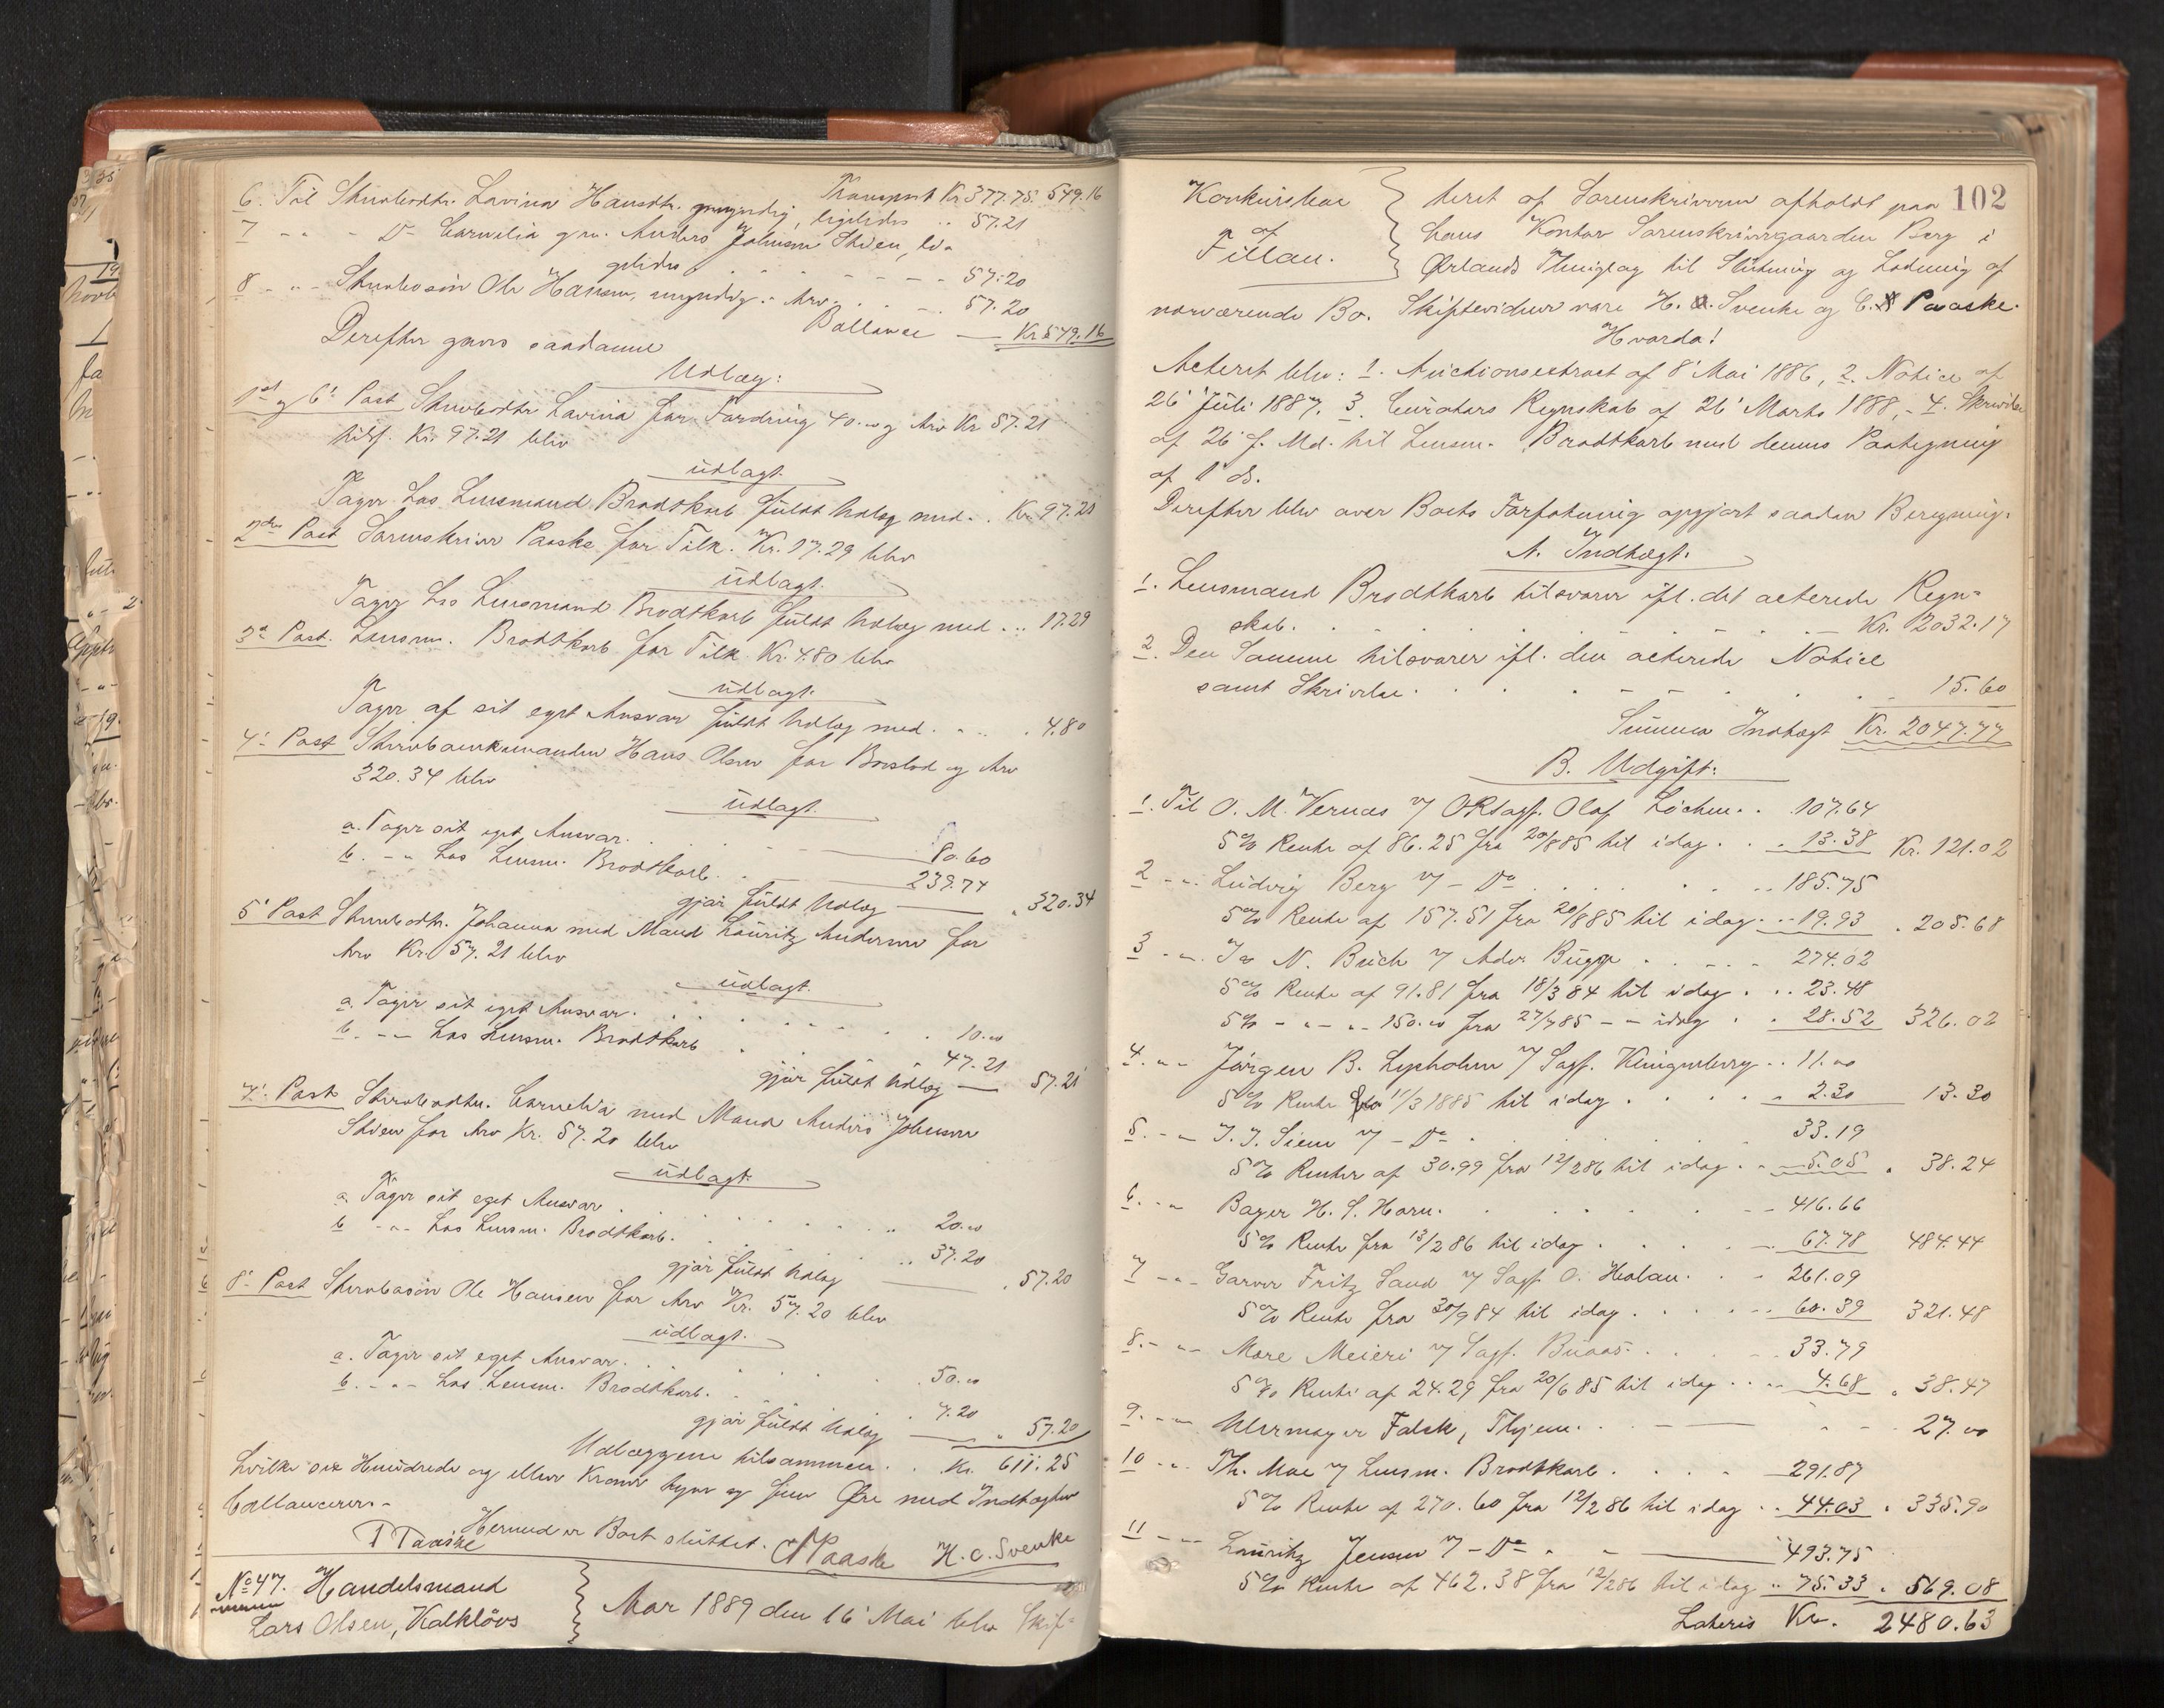 Transport Kr 377.75. 549.16
6. Til Stervbodtr. Lavina Hansdtr. umyndig, ligeledes .. 57.21
7 - " - Do Cornelia g. m. Anders Johnsen Stöen, li-
geledes . . . . 57.20
8 - " - Stervbosön Ole Hansen, umyndig .. Arv . . . 57.20
Ballance — Kr 549.16
Derefter gjøres saadanne
Udlæg:
1ste og 6' Post Stervbodtr Lavina for Fordring 40.00 og Arv Kr 57.21
tils. Kr. 97.21 blev
üdlagt.
Tager hos Lensmand Brodtkorb füldt Udlæg med . . Kr. 97.21
2den Post Sorenskriver Paaske for Tilk. Kr. 17.29 blev
üdlagt.
Tager hos Lensmand Brodtkorb füldt Udlæg med . .. 17.29
3die Post. Lensm. Brodtkorb for Tilk. Kr. 4.80 blev
üdlagt.
Tager af sit eget Ansvar füldt Udlæg med . . .. . 4.80
4' Post Stervboenkemanden Hans Olsen for Boeslod og Arv
320.34 blev
üdlagt.
a. Tager sit eget Ansvar. . . . 80.60
b. - " hos Lensm. Brodtkorb. . . 239.74
gjör füldt Udlæg — " 320.34
5' Post Stervbodtr. Johanna med Mand Lauritz Andersen for
Arv Kr. 57.21 blev
üdlagt.
a. Tager sit eget Ansvar. . . . . 10.00
b. - " hos Lensm. Brodtkorb . . 47.21
gjör füldt Udlæg — 57.21
7' Post Stervbodtr. Cornelia med Mand Anders Johnsen
Stöen for Arv Kr. 57.20 blev
üdlagt.
a. Tager sit eget Ansvar . . . . .. 20.00
b - " - hos Lensm. Brodtkorb. . . .. 37.20
gjör füldt Udlæg — . 57.20
8' Post Stervbosön Ole Hansen for Arv Kr. 57.20 blev
üdlagt.
a. Tager sit eget Ansvar. . . . . 50.00
b. - " - hos Lensm. Brodtkorb. . . . 7.20
gjör füldt Udlæg — " 57.20
Udlæggene tilsammen . . Kr. 611.25
hvilke sex Hundrede og elleve Kroner tyve og fem Øre med Indtægten
ballancerer. -
Hermed er Boet slüttet.
P Paaske C Paaske H. C. Svenke
No 47. Handelsmand
Lars Olsen, Kalklövs
Aar 1889 den 16' Mai blev Skif-
102
Konkursbo
af
Fillan.
teret af Sorenskriveren afholdt paa
hans Kontor Sorenskrivergaarden Berg i
Ørlands Thinglag til Slütning og Lodning af
nærværende Bo. Skiftevidner vare H. C. Svenke og C. Paaske.
Hvorda!
Acteret blev: 1. Auctionsextract af 8' Mai 1886, 2. Notice af
26' Juli 1887, 3. Curators Regnskab af 26' Marts 1888, - 4. Skrivelse
af 26' f. Md. til Lensm. Brodtkorb med dennes Paategning
af 1' ds.
Derefter blev over Boets Forfatning opgjort saadan Beregning.
A. Indtægt.
1. Lensmand Brodtkorb tilsvarer ifl. det acterede Regn-
skab. . . . . . . . . Kr. 2032.17
2. Den Samme tilsvarer ifl. den acterede Notice
samt Skrivelse . . . . . . . 15.60
Summa Indtægt Kr. 2047.77
B. Udgift:
1. Til O. M. Vernæs v/ ORsagf. Olaf Löchen . . 107.64
5% Rente af 86.25 fra 20/8 85 til idag . . . 13.38 Kr. 121.02
2 - " - Ludvig Berg v/ - Do . . . . . . .. 185.75
5% Rente af 157.51 fra 20/8 85 til idag . .. 19.93 . 205.68
3 - " - Is N. Buch v/ Adv. Bügge . . . . . 274.02
5% Rente af 91.81 fra 18/3 84 til idag . . . 23.48
5% - " - " - 150.00 fra 27/7 85 - - idag . . 28.52 326.02
4. " - Jörgen B. Lysholm v/ Sagf. Kluignberg . . 11.00
5% Rente fra 11/3 1885 til idag . . . . . 2.30 13.30
5. - " J. J. Siem v/ - Do . . . . . . 33.19
5% Renter af 30.99 fra 12/2 86 til idag . . 5.05 . 38.24
6. - " Bager H. S. Horn. . . . . . - - 416.66
5% Rente fra 13/2 86 til idag . . . . . 67.78 484.44
7 - " - Garver Fritz Sand v/ Sagf. O. Holan . . . 261.09
5% Rente fra 30/9 84 til idag . . . . . 60.39 321.48
8. - " - Møre Meieri v/ Sagf. Buaas . . . . 33.79
5% Rente af 24.29 fra 20/6 85 til idag . . . . 4.68 . 38.47
9. - " - Uhrmager Falck, Thjem. . . — . . . 27.00
10 - " - Th. Moe v/ Lensm. Brodtkorb . . . . . 291.87
5% Rente af 270.60 fra 12/2 86 til idag . . . 44.03 . 335.90
11 - " - Lauritz Jensen v/ - Do . . — 493.75
5% Rente af 462.38 fra 12/2 86 til idag .. 75.33 . 569.08
Lateris Kr. 2480.63